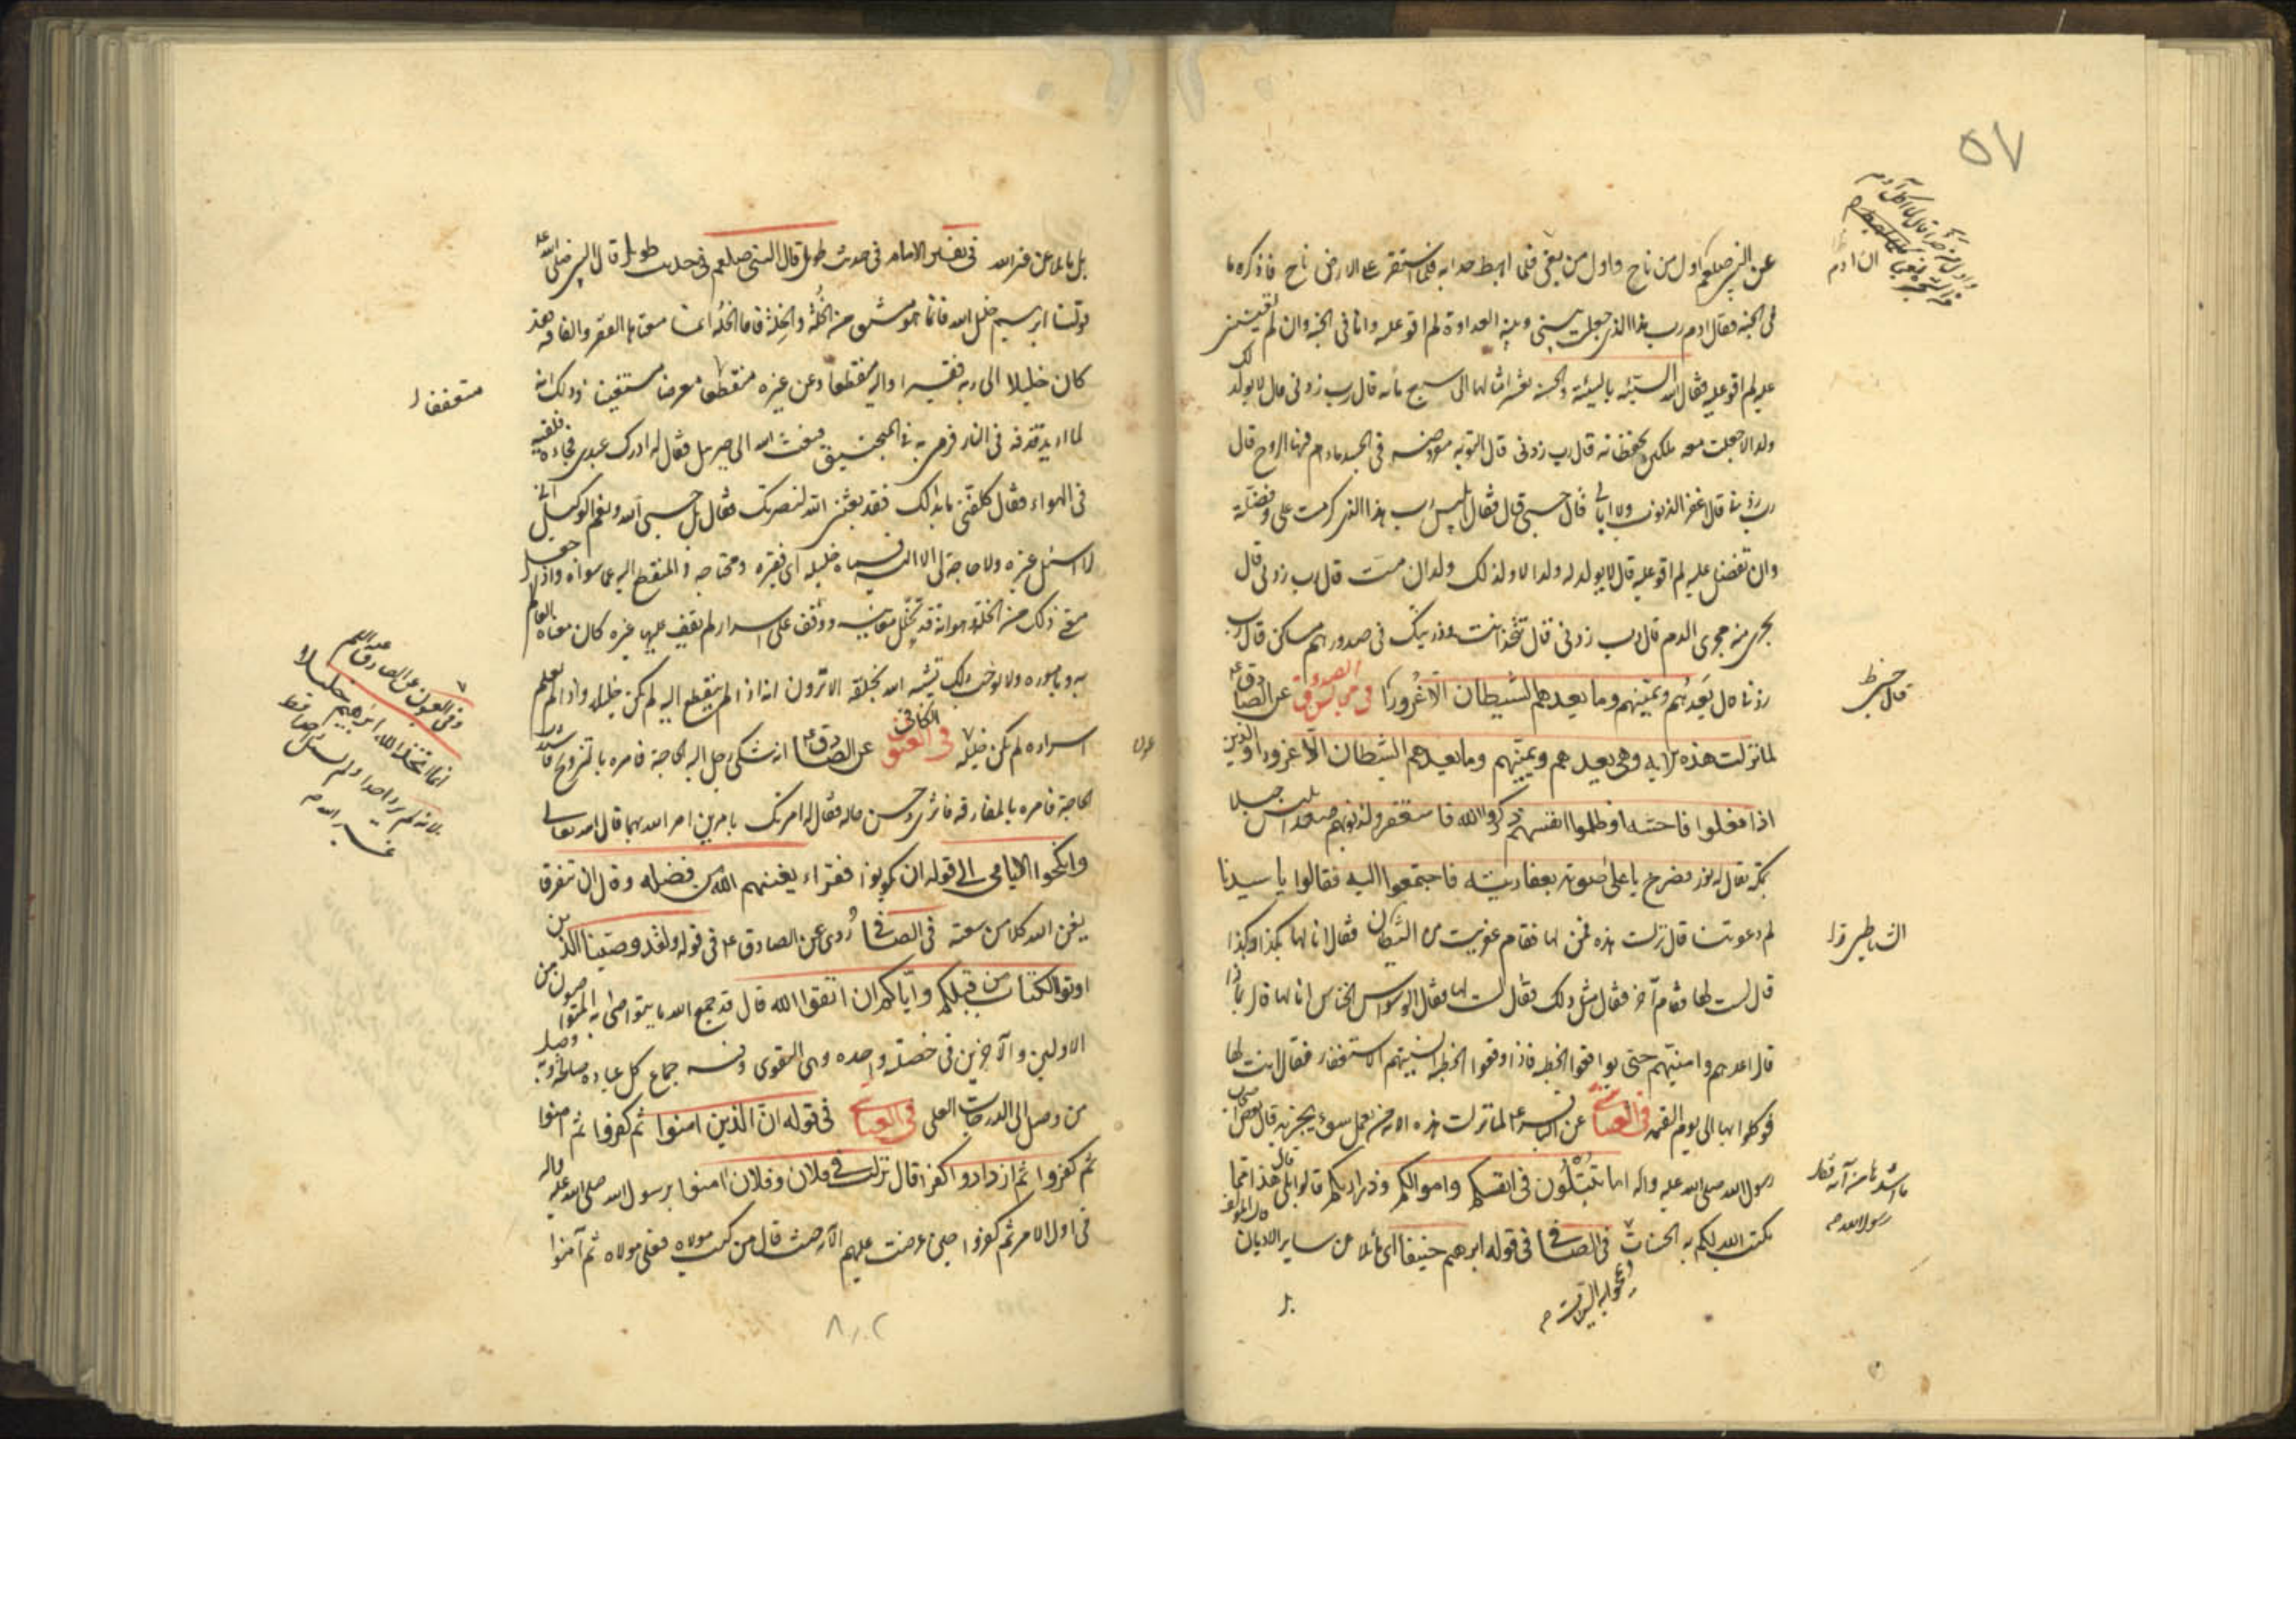 ٥٧
عن النبي صلعم اول من ناح واول من يغنى فلما اهبط حدا به فلما استقر على الارض ناح فاذكره ما
فى الجنه فقال ادم رب هذا الذى جعلت بينى وبينه العداوة لم اقو عليه وانا فى الجنه وان لم
عليه لم اقو عليه فقال الله السيئه بالسيئة والحسنه بعشر امثالها الى سبع مائه قال رب زدنى قال لا يولد لك
ولد الا جعلت معه ملكين يحفظانه قال رب زدنى قال التوبه معروضه فى الجسد مادام فيها الروح قال
رب زدنى قال اغفر الذنوب ولا ابالى قال حسبى قال فقال ابليس رب هذا الذى كرمت على وفضلته
وان تفضل عليه لم اقو عليه قال لا يولد له ولد الا ولد لك ولدان قال رب زدنى قال
تجرى منه مجرى الدم قال رب زدنى قال تتخذ انت وذريتك فى صدورهم مساكن قال رب
زدنى قال يعدهم ويمنيهم وما يعدهم الشيطان الا غرورا فى مجالس الصدوق عن الصادق
لما نزلت هذه الايه وهى يعدهم ويمنيهم وما يعدهم الشيطان الا غرورا والذين
اذا فعلوا فاحشه او ظلموا انفسهم ذكروا الله فاستغفروا لذنوبهم صعد ابليس جبلا
بمكة يقال له ثور فصرخ باعلى صوته بعفاريته فاجتمعوا اليه فقالوا يا سيدنا
لم دعوتنا قال نزلت هذه فمن لها فقام عفريت من الشيطان فقال انا لها بكذا وكذا
قال لست لها فقام آخر فقال مثل ذلك فقال لست لها فقال الوسواس الخناس انا لها قال بماذا
قال اعدهم وامنيهم حتى يواقعوا الخطيه فاذا وقعوا الخطيه انسيتهم الاستغفار فقال انت لها
فوكله بها الى يوم القيمه فى العياشى عن الباقر ع لما نزلت هذه الايه من يعمل سوء يجز به قال بعض اصحاب
رسول الله صلى الله عليه واله اما تبتلون فى انفسكم واموالكم وذراريكم قالوا بلى قال هذا مما
يكتب الله لكم به الحسنات فى الصافى فى قوله ابرهيم حنيفا اى مائلا عن ساير الاديان
ان ادم
قال
الشياطين
ما اشدها من آيه فقال
رسول الله ص
بل
فى تفسير الامام فى حديث طويل قال النبى صلعم فى حديث طويل قال النبى صلى الله
قولنا ابراهيم خليل الله فانما هو مشتق من الخلة والخلة فاما الخلة انما معناها الفقر والفاقه فقد
كان خليلا الى ربه فقيرا واليه منقطعا وعن غيره متعففا معرضا مستغنيا وذلك انه
لما اريد قذفه فى النار فرمى به فى المنجنيق فبعث الله الى جبرئيل فقال له ادرك عبدى فجاءه فلقيه
فى الهواء فقال كلفنى ما بدا لك فقد بعثنى الله لنصرتك فقال بل حسبى الله ونعم الوكيل انى
لا اسئل غيره ولا حاجة لى الا اليه فسماه خليله اى فقيره ومحتاجه والمنقطع اليه عما سواه واذا جعل
معنى ذلك من الخلة هو انه قد تخلل معانيه ووقف على اسرار لم يقف عليها غيره كان معناه العالم
به وباموره ولا يوجب ذلك تشبيه الله بخلقه الا ترون انه اذا لم ينقطع اليه لم يكن خليله واذا لم يعلم
اسراره لم يكن خليله فى الكافى عن الصادق ع انه شكى رجل اليه الحاجة فامره بالتزويج فاشتدت
الحاجة فامره بالمفارقه فاثرى وحسن حاله فقال له امرتك بامرين امر الله بهما قال الله تعالى
وانكحوا الايامى الى قوله ان يكونوا فقراء يغنهم الله من فضله وقال ان يتفرقا
يغن الله كلا من سعته فى الصافى روى عن الصادق ع فى قوله ولقد وصينا الذين
اوتوا الكتاب من قبلكم واياكم ان اتقوا الله قال قد جمع الله ما يتواصى به المتواصون من
الاولين والآخرين فى خصلة واحده وهى التقوى وفيه جماع كل عبادة صالحة وبه وصل
من وصل الى الدرجات العلى فى العياشى فى قوله ان الذين امنوا ثم كفروا ثم امنوا
ثم كفروا ثم ازدادوا كفرا قال نزلت فى فلان وفلان امنوا برسول الله صلى الله عليه واله
فى اول الامر ثم كفروا حين عرضت عليهم الآية حيث قال من كنت مولاه فعلى مولاه ثم آمنوا
متعففا
وفى العيون عن الصادق عليه السلم
انما اتخذ الله ابراهيم خليلا
لانه لم يرد احدا ولم يسئل احدا قط
غير الله